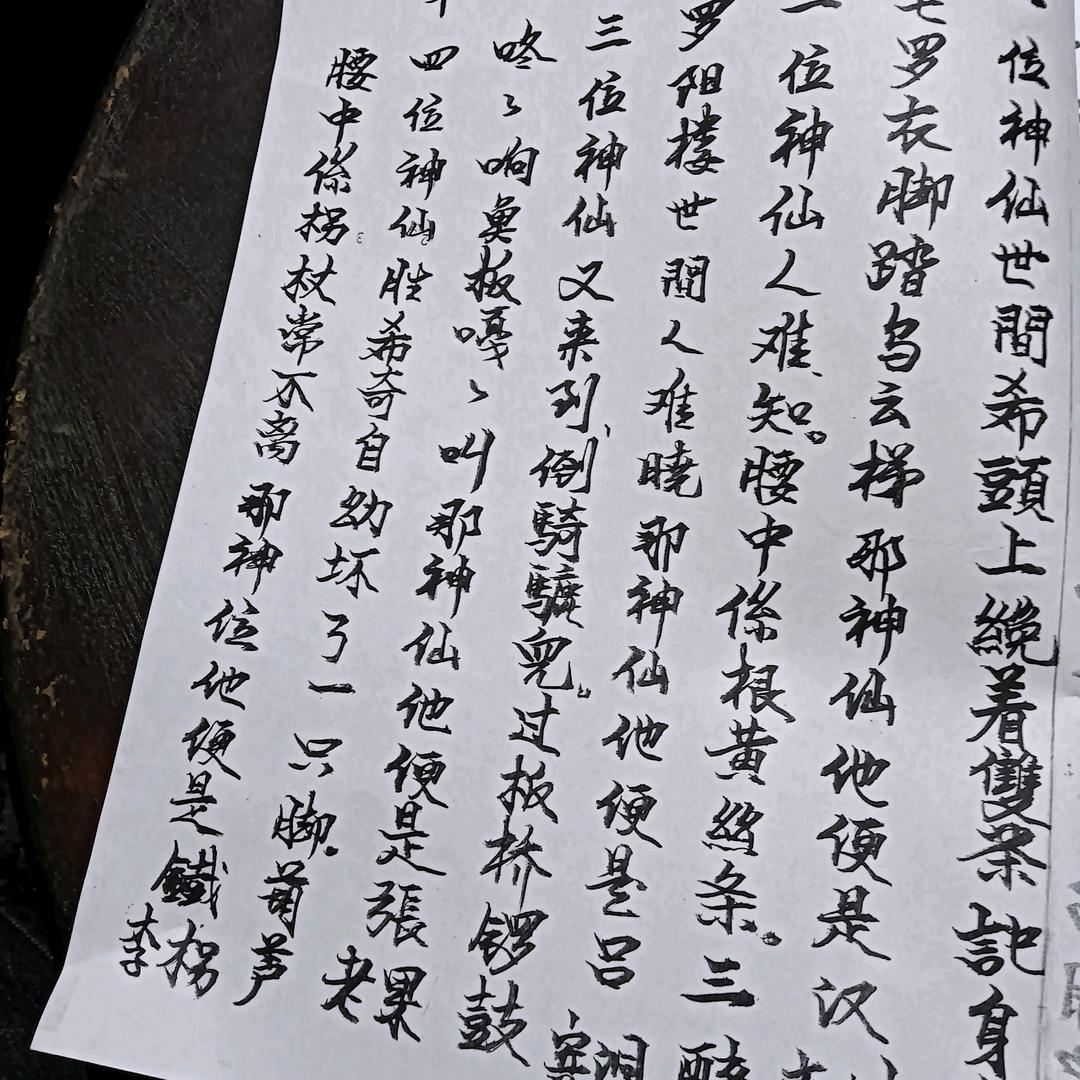 位神仙世間希頭上絻着雙条訑身
七罗衣脚踏乌云梯那神仙他便是汉
一位神仙人难知。腰中係根黄丝条。三醉
罗阳楼世間人难曉那神仙他便是吕洞宾
三位神仙又来到倒騎驢兒。过板桥锣鼓
咚〻响奠板嘎〻叫那神仙他便是張果老
四位神仙胜希奇自幼坏了一只脚。葫芦
腰中係拐杖常不离那神位他便是鐵拐李